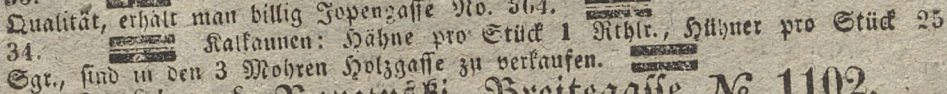 Qualität, erhält man billig Jopengasse No. 564.
34. Kalkaunen: Hähne pro Stück 1 Rthlr., Hühner pro Stück 25
Sgr., sind in den 3 Mohren Holzgasse zu verkaufen.
Breitegasse № 1102.